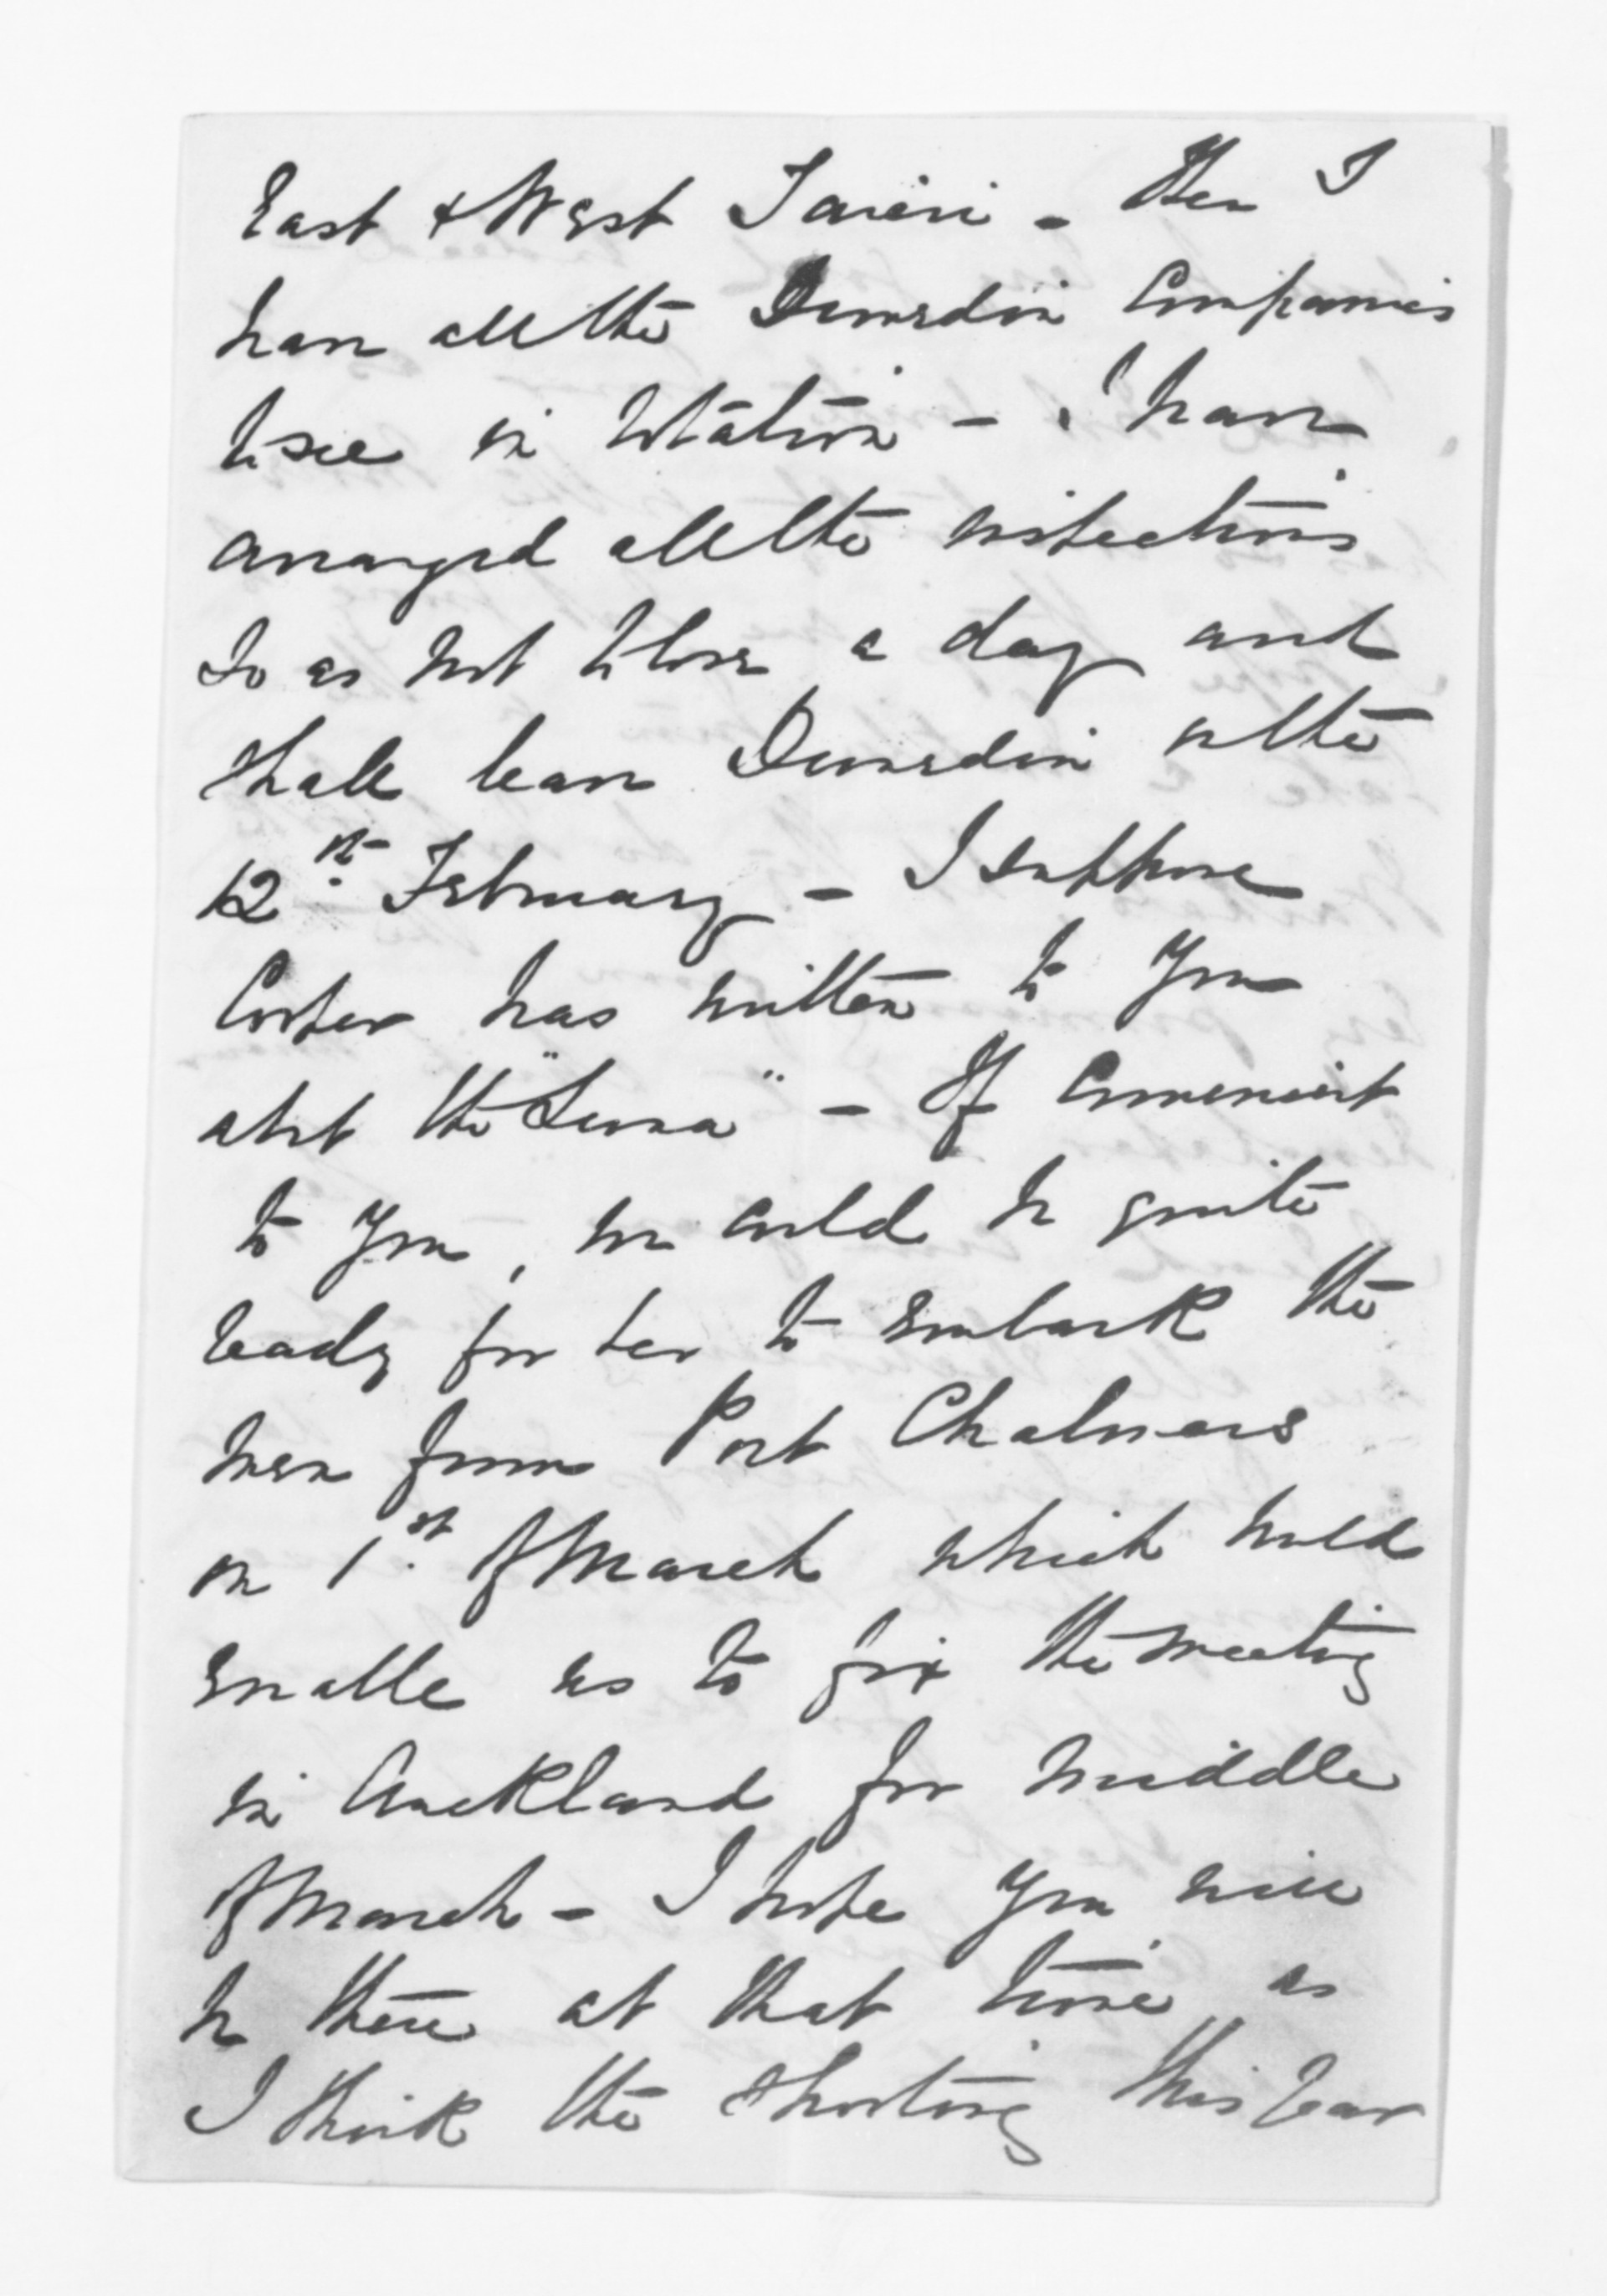 East & West Taieri - Then I
have all the Dunedin Companies
to see in rotation - I have
arranged all the inspections
so as not to lose a day and
shall leave Dunedin on the
12th February - I suppose
has written to you
abt the "Luna" - If Convenient
to you, we could be quite
ready for her to embark the
men from Port Chalmers
on 1st of March which would
enable us to fix the meeting
in Auckland for middle
of March - I hope you will
be there at that time as
I think the shooting this year